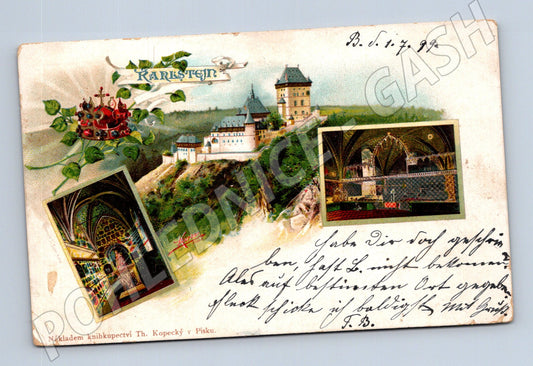 KARLSTEJN
B. d. 1. 7. 99.
habe Dir doch geschrie
ben, hast B. nicht bekommen
Also auf bestimten Ort gegeben
schicke ich baldigst mit Gruß
F. B.
Nákladem knihkupectví Th. Kopecký v Písku.
POHLEDNICE - GASH